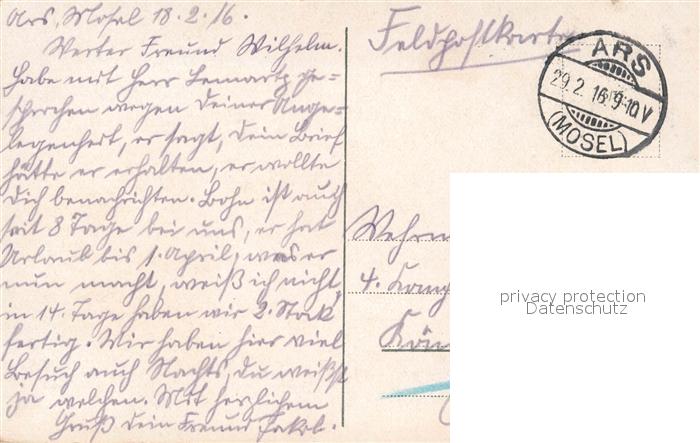 Ars, Mosel 18.2.16.
Werter Freund Wilhelm.
Habe mit Herr Lennartz ge=
sprochen wegen deiner Ange=
legenheit, er sagt, dein Brief
hätte er erhalten, er wollte
dich benachrichten. Bohn ist auch
seit 8 Tage bei uns, er hat
Urlaub bis 1. April, was er
nun macht, weiß ich nicht,
in 14 Tage haben wir 2. Stock
fertig. Wir haben hier viel
Besuch auch Nachts, du weißt
ja welchen. Mit herzlichem
Gruß dein Freund Jakob.
Feldpostkarte
ARS
29.2.16.9-10V
(MOSEL)
Wehrm
4. Komp
Kön
privacy protection
Datenschutz